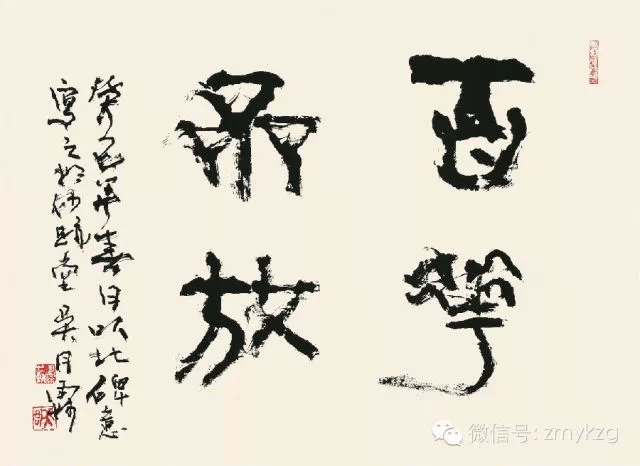 百花
齐放
癸巳年春月以北碑意
写之于 堂 吴月霖
微信号: zmykzg